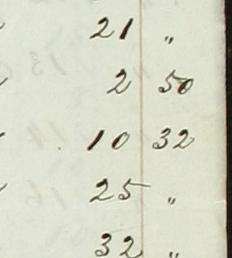 21 "
2 50
10 32
25 "
32 "